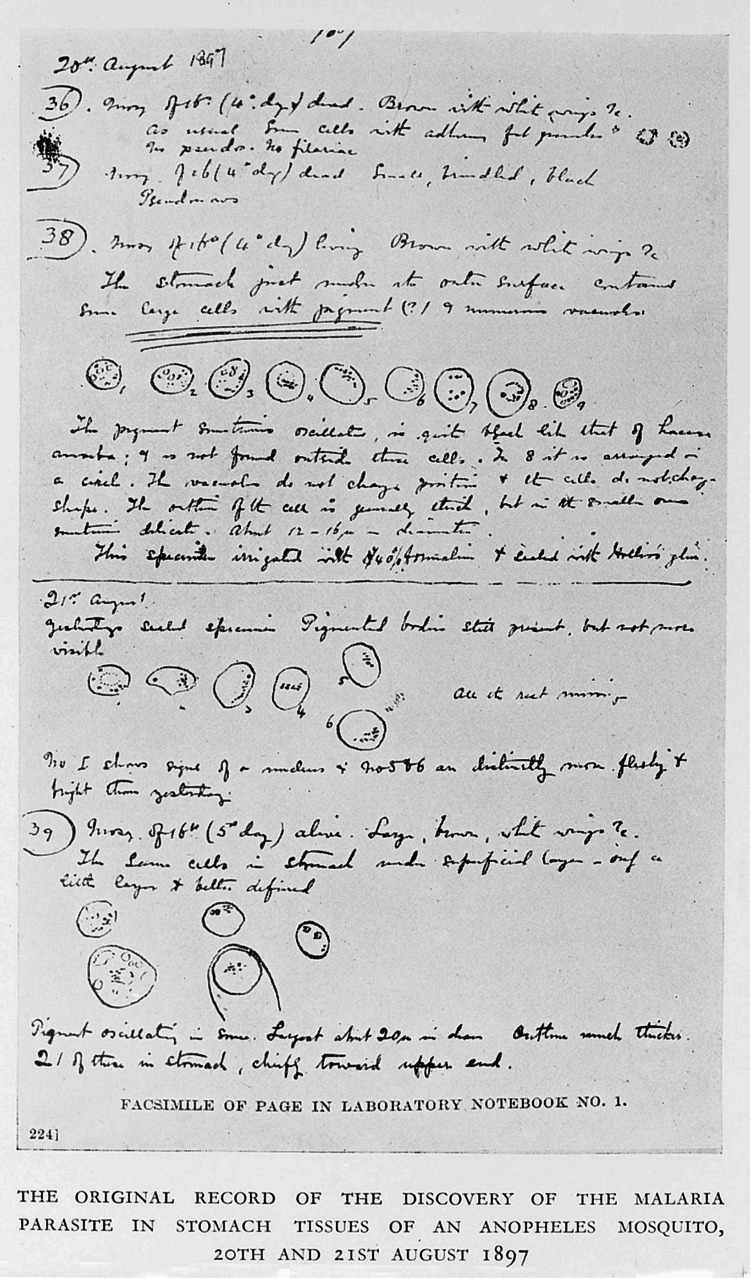 107
20th August 1897
36. Mosq. of 16th (4th day) dead. Brown with white wings &c.
As usual. Some cells with adhering fat granules
No pseudo. No filariae
37 Mosq. of 16 (4th day) dead Small, brindled, black
Pseudonavs
38. Mosq of 16th (4th day) living Brown with white wings &c
The stomach just under its outer surface contained
some large cells with pigment (?) & numerous vacuoles.
1 2 3 4 5 6 7 8. 9
The pigment sometimes oscillates, is quite black like that of haem
amoeba; & is not found outside these cells. In 8 it is arranged in
a circle. The vacuoles do not change position & the cells do not change
shape. The outline of the cell is generally thick, but in the smaller ones
sometimes delicate. About 12-16µ in diameter.
This specimen irrigated with 40% formalin & sealed with Hollis's glue.
21st August.
Yesterdays sealed specimen Pigmented bodies still present, but not more
visible
1 2 3 4 5 6
All the rest missing
No 1 shows signs of a nucleus & No 5 & 6 are distinctly more fleshy &
bright than yesterday.
39 Mosq. of 16th (5th day) alive. Large, brown, white wings &c.
The same cells in stomach under superficial layer - only a
little larger & better defined
Pigment oscillating in some. Largest about 20µ in diam Outline much thicker.
21 of these in stomach, chiefly toward upper end.
FACSIMILE OF PAGE IN LABORATORY NOTEBOOK NO. 1.
224]
THE ORIGINAL RECORD OF THE DISCOVERY OF THE MALARIA
PARASITE IN STOMACH TISSUES OF AN ANOPHELES MOSQUITO,
20TH AND 21ST AUGUST 1897